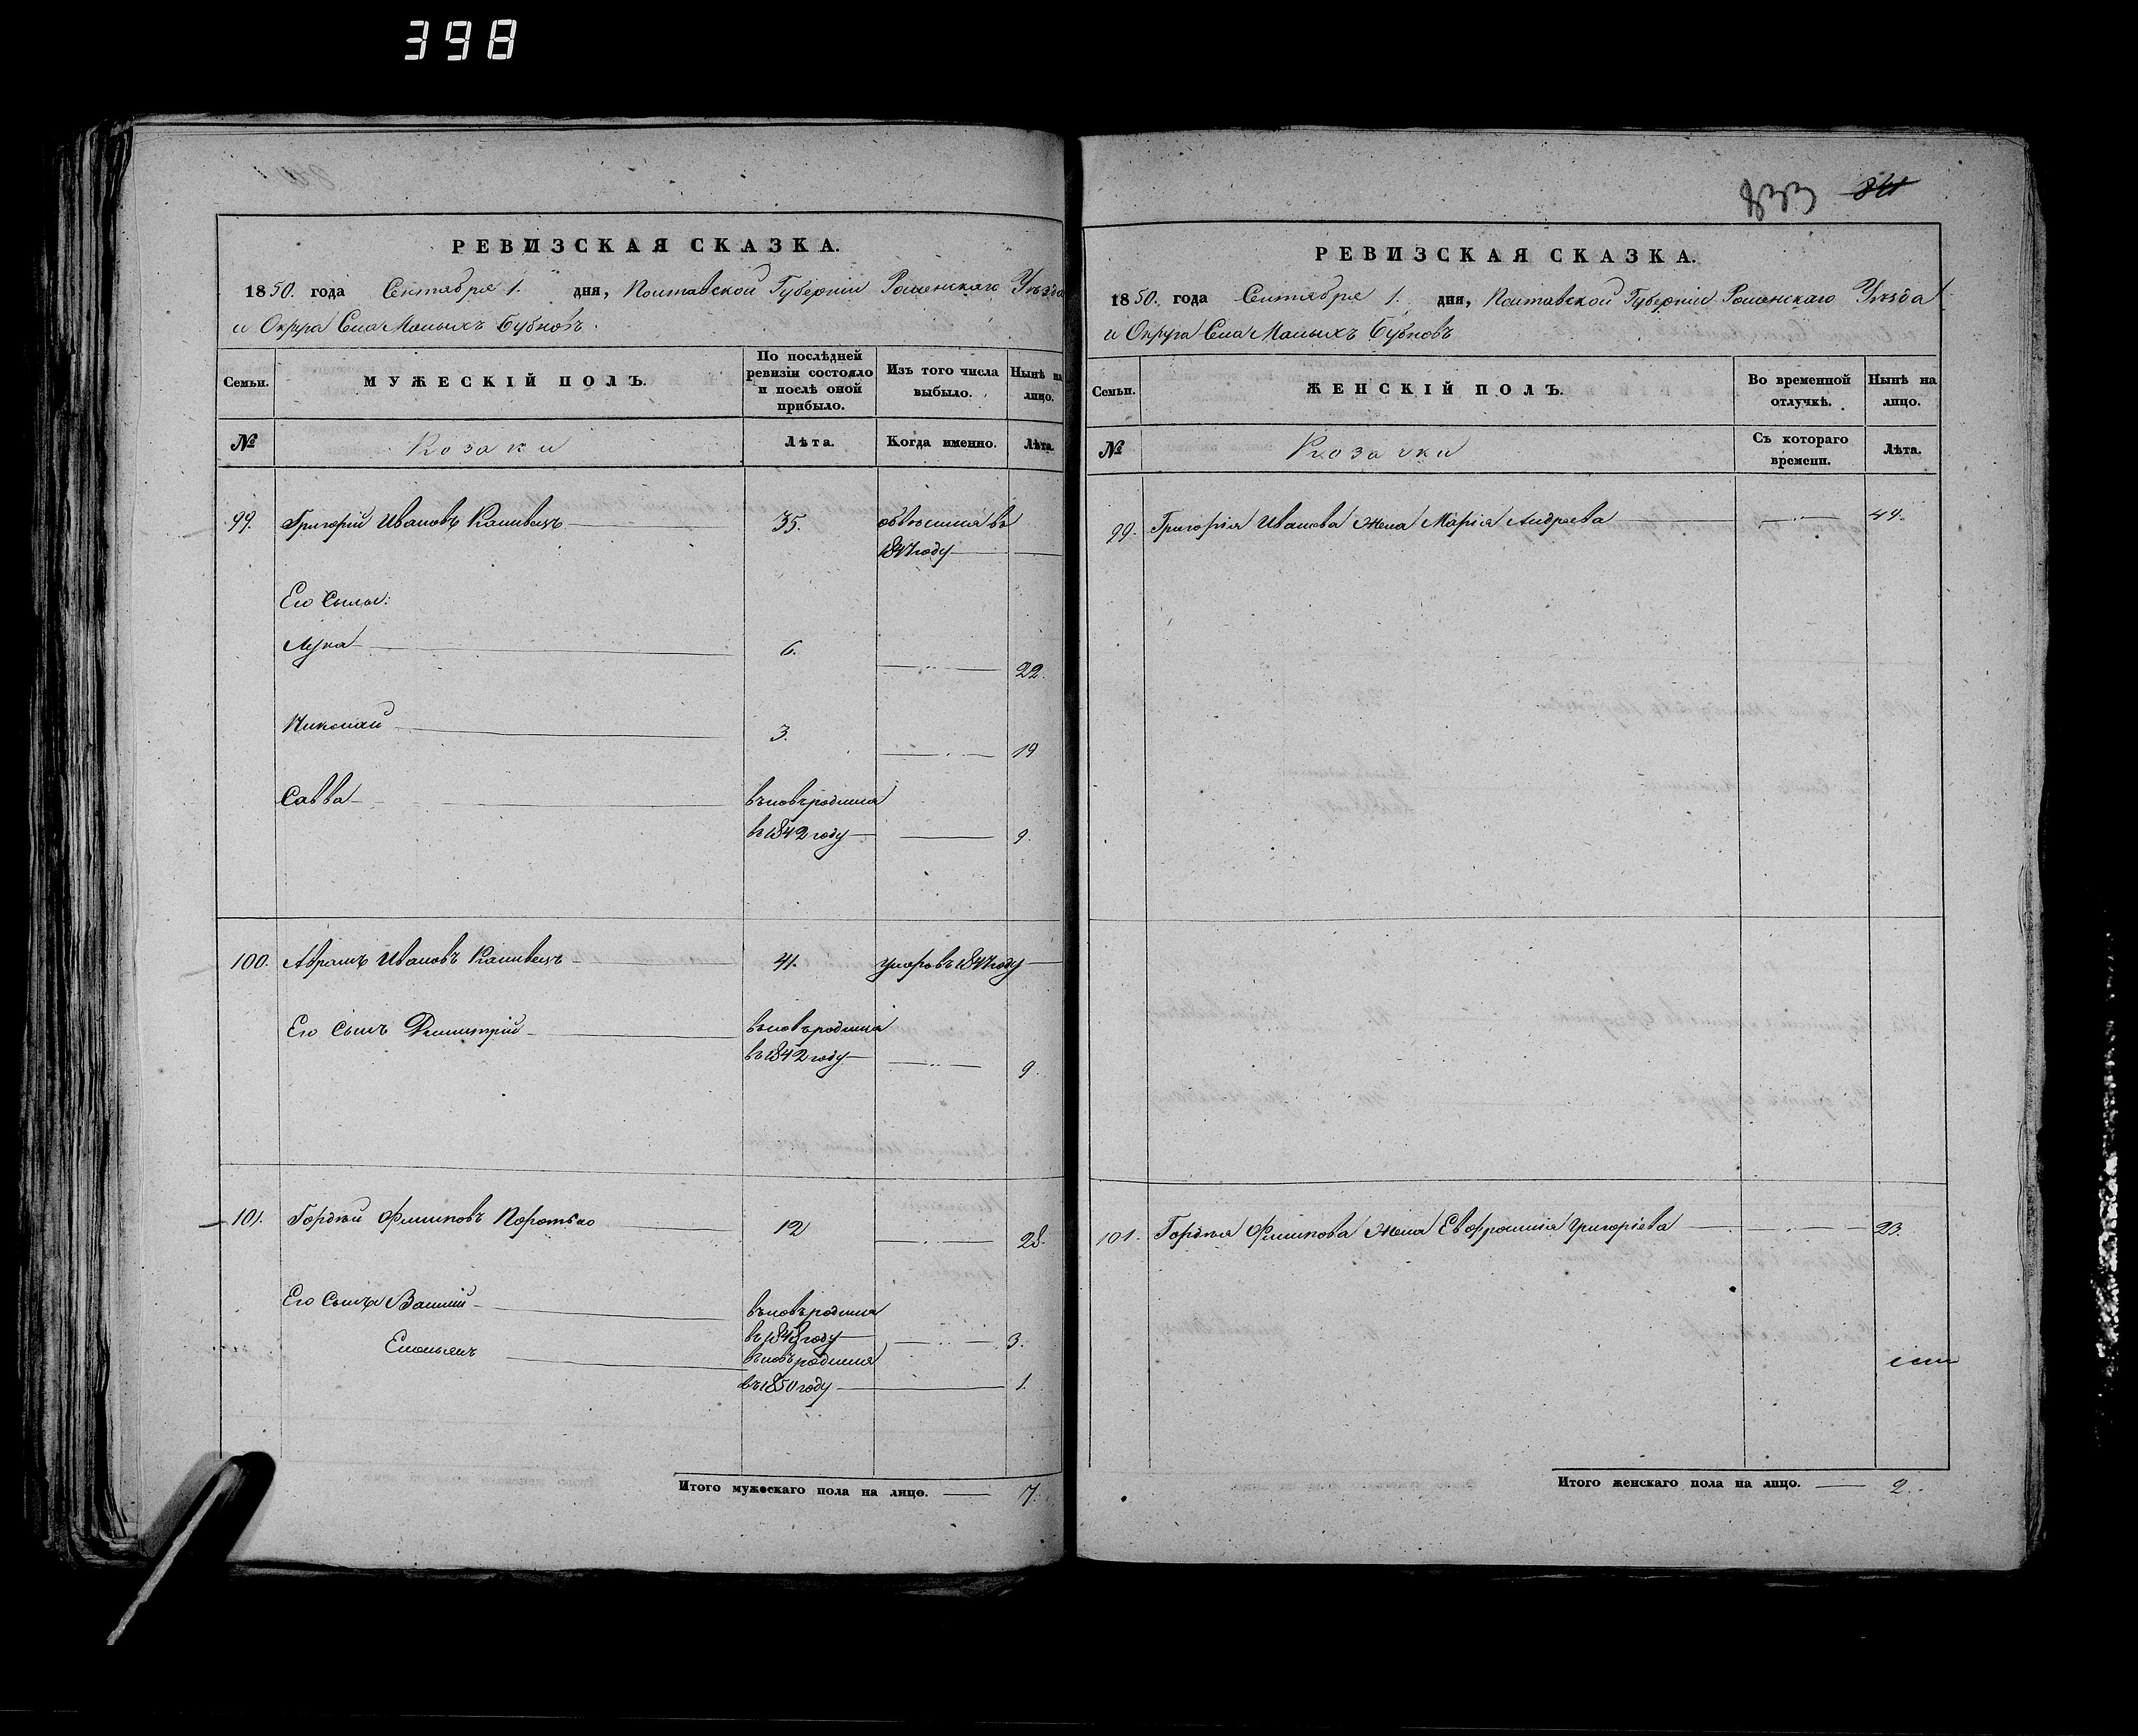 398
РЕВИЗСКАЯ СКАЗКА.
1850. года Сентября 1. дня, Полтавской Губерніи Роменскаго Уѣзда
и Округа Села Малыхъ Бубновъ.
Семьи.
МУЖЕСКІЙ ПОЛЪ.
По послѣдней ревизіи состояло и послѣ оной прибыло.
Изъ того числа выбыло.
Нынѣ на лицо.
№
Козаки
Лѣта.
Когда именно.
Лѣта.
99. Григорій Ивановъ Каливецъ 35.
1847 году
Его Сыны:
Лука 6. 22.
Николай 3. 19
Савва вновь родился
въ 1842 году 9.
100. Абрамъ Ивановъ Каливецъ 41. умеръ въ 1847 году
Его Сынъ Димитрій вновь родился
въ 1842 году 9.
101. Гордѣй Филиповъ Коротько 12 28.
Его Сынъ Василій вновь родился
въ 1848 году 3.
Емельянъ вновь родился
въ 1850 году 1.
Итого мужескаго пола на лицо. 7.
833 841
РЕВИЗСКАЯ СКАЗКА.
1850. года Сентября 1. дня, Полтавской Губерніи Роменскаго Уѣзда
и Округа Села Малыхъ Бубновъ
Семьи.
ЖЕНСКІЙ ПОЛЪ.
Во временной отлучкѣ.
Нынѣ на лицо.
№
Козачки
Съ котораго времени.
Лѣта.
99. Григорія Иванова жена Марія Андреева 49.
101. Гордѣя Филипова жена Евфросинія Григоріева 23.
Итого женскаго пола на лицо. 2.